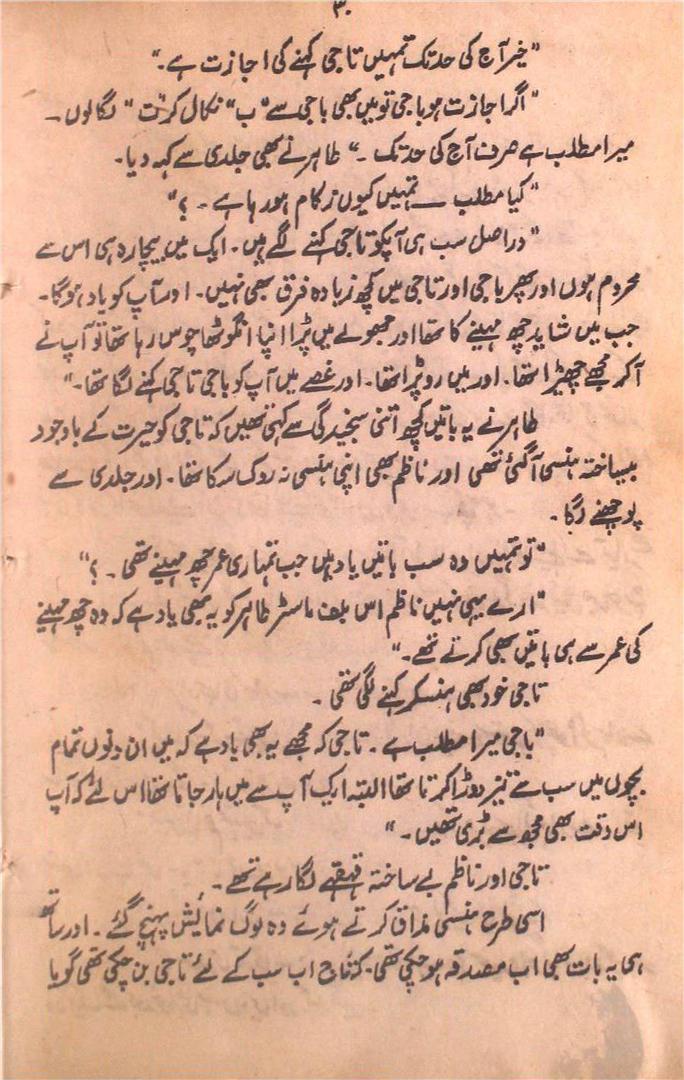 ۳۰
"خیر آج کی حد تک تمہیں تاجی کہنے کی اجازت ہے۔"
"اگر اجازت ہو باجی تو میں بھی باجی سے "ب" نکال کر "ت" لگا لوں۔
میرا مطلب ہے صرف آج کی حد تک۔" طاہر نے بھی جلدی سے کہہ دیا۔
"کیا مطلب ــــ تمہیں کیوں زکام ہو رہا ہے۔؟"
"دراصل سب ہی آپکو تاجی کہنے لگے ہیں۔ ایک میں بیچارہ ہی اس سے
محروم ہوں اور پھر باجی اور تاجی میں کچھ زیادہ فرق بھی نہیں۔ اور آپ کو یاد ہوگا۔
جب میں شاید چھ مہینے کا تھا اور جھولے میں پڑا اپنا انگوٹھا چوس رہا تھا تو آپ نے
آکر مجھے چھیڑا تھا۔ اور میں رو پڑا تھا۔ اور غصے میں آپ کو باجی تاجی کہنے لگا تھا۔"
طاہر نے یہ باتیں کچھ اتنی سنجیدگی سے کہی تھیں کہ تاجی کو حیرت کے باوجود
بیساختہ ہنسی آگئی تھی اور ناظم بھی اپنی ہنسی نہ روک سکا تھا۔ اور جلدی سے
پوچھنے لگا۔
"تو تمہیں وہ سب باتیں یاد ہیں جب تمہاری عمر چھ مہینے تھی۔؟"
"ارے یہی نہیں ناظم اس بلکہ ماسٹر طاہر کو یہ بھی یاد ہے کہ وہ چھ مہینے
کی عمر سے ہی باتیں بھی کرتے تھے۔"
تاجی خود بھی ہنسکر کہنے لگی تھی۔
"باجی میرا مطلب ہے۔ تاجی کہ مجھے یہ بھی یاد ہے کہ میں ان دنوں تمام
بچوں میں سب سے تیز دوڑا کرتا تھا البتہ ایک آپ سے میں ہار جاتا تھا اس لئے کہ آپ
اس وقت بھی مجھ سے بڑی تھیں۔"
تاجی اور ناظم بے ساختہ قہقہے لگا رہے تھے۔
اسی طرح ہنسی مذاق کرتے ہوئے وہ لوگ نمائش پہنچ گئے۔ اور ساتھ
ہی یہ بات بھی اب مصدقہ ہو چکی تھی۔ کہ تاج اب سب کے لئے تاجی بن چکی تھی گویا